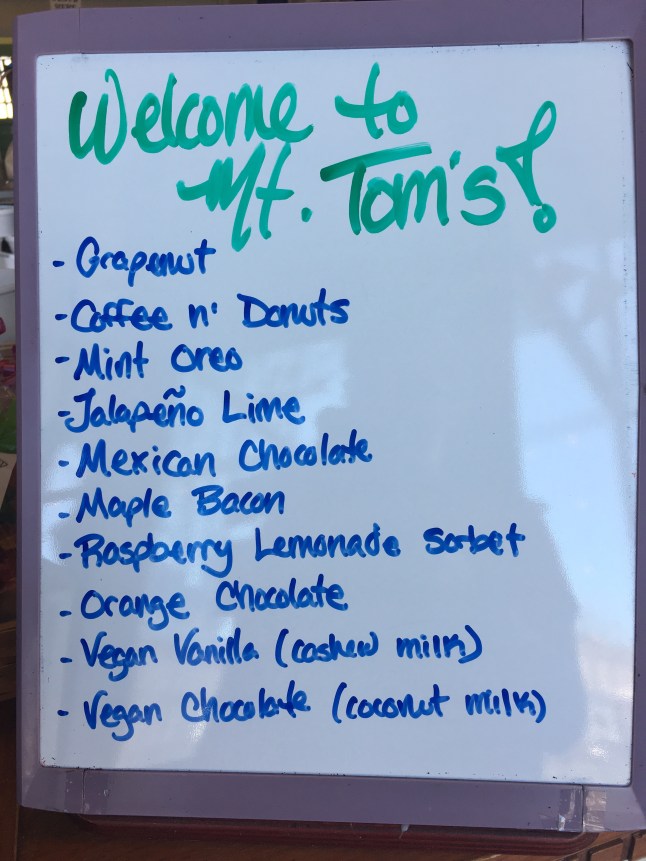 Welcome to
Mt. Tom's!
- Grapenut
- Coffee n' Donuts
- Mint Oreo
- Jalapeño Lime
- Mexican Chocolate
- Maple Bacon
- Raspberry Lemonade Sorbet
- Orange Chocolate
- Vegan Vanilla (cashew milk)
- Vegan Chocolate (coconut milk)